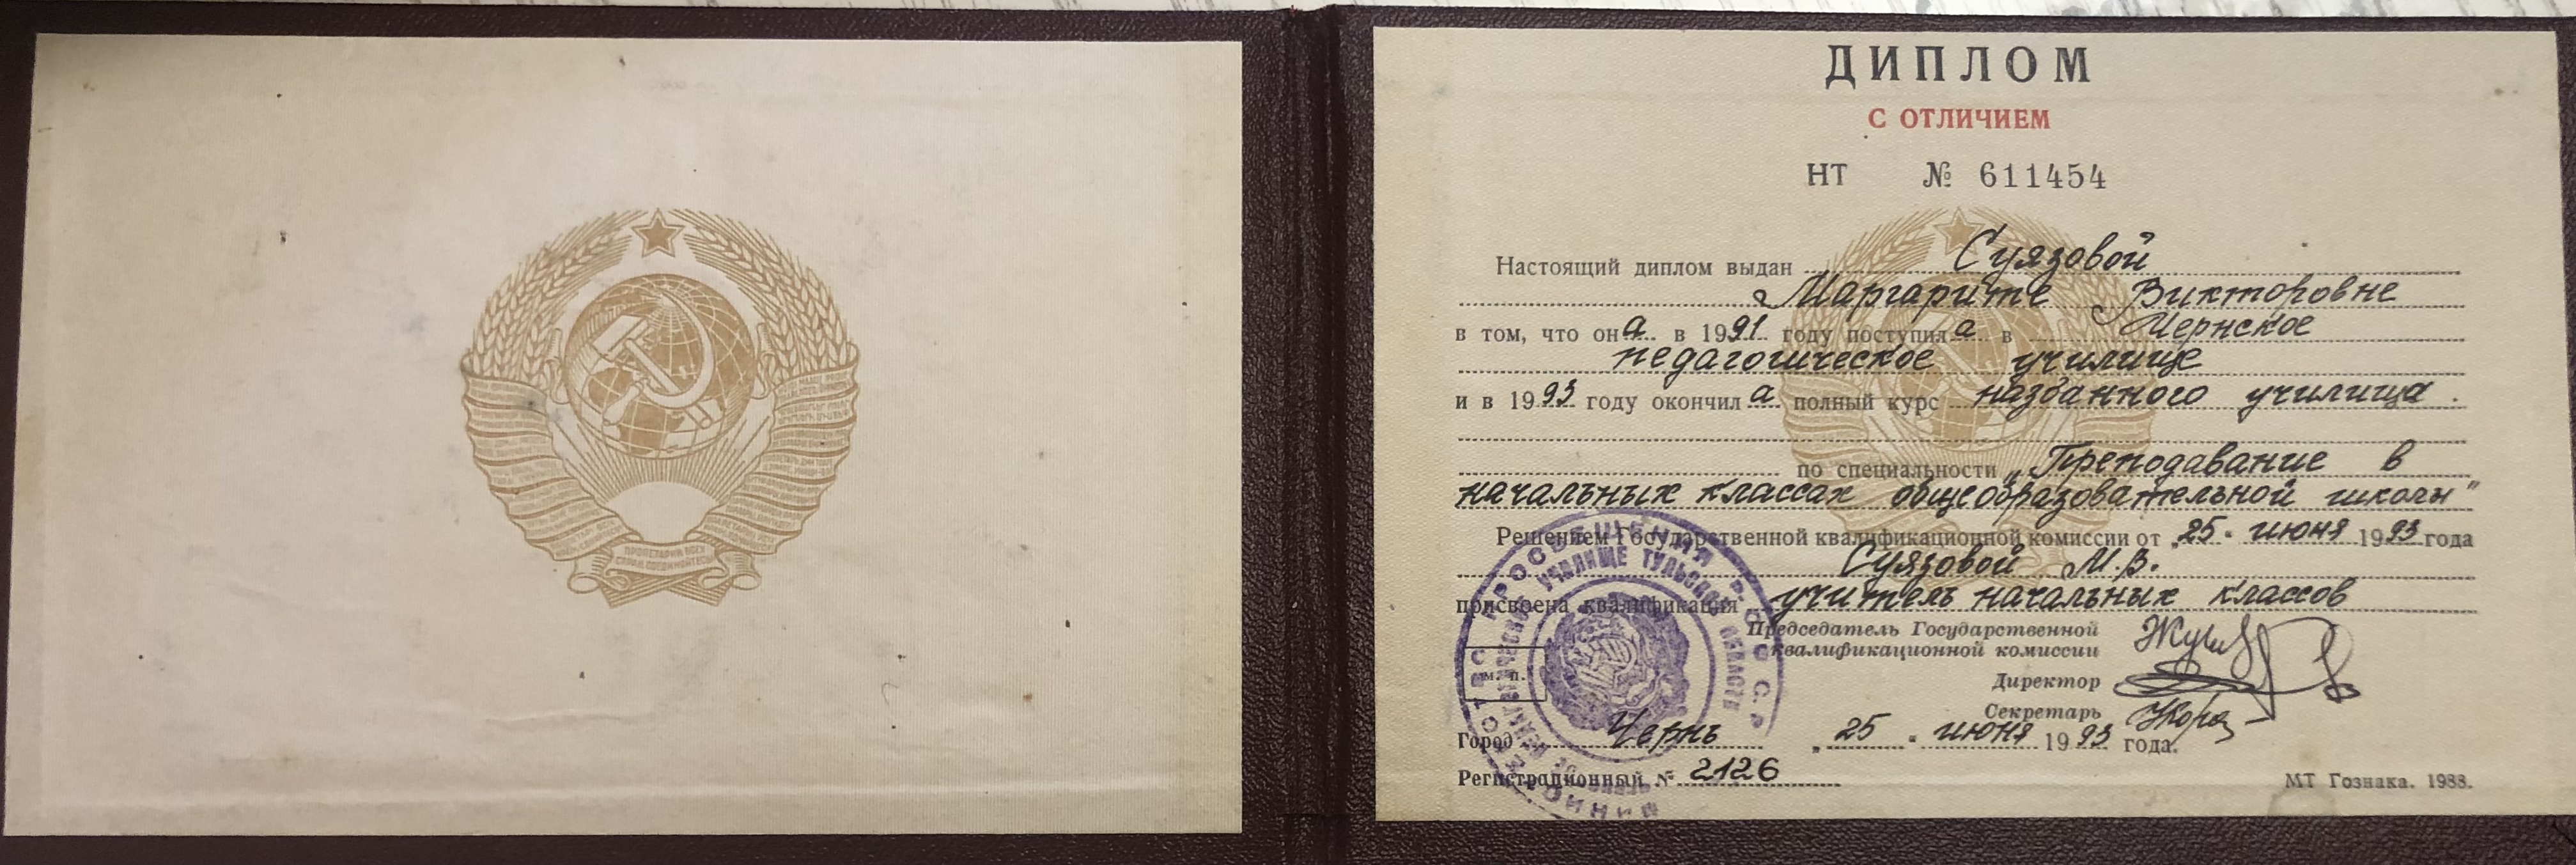 ПРОЛЕТАРИИ ВСЕХ
СТРАН, СОЕДИНЯЙТЕСЬ!
ДИПЛОМ
С ОТЛИЧИЕМ
НТ № 611454
Настоящий диплом выдан Суязовой
Маргарите Викторовне
в том, что она в 1991 году поступила в Чернское
педагогическое училище
и в 1993 году окончила полный курс названного училища.
по специальности „Преподавание в
начальных классах общеобразовательной школы"
Решением Государственной квалификационной комиссии от „25" июня 1993 года
Суязовой М.В.
присвоена квалификация учитель начальных классов
Председатель Государственной
квалификационной комиссии
Директор
Секретарь
м. п.
Город Чернь „25" июня 1993 года.
Регистрационный № 2126
МТ Гознака. 1988.
МИНИСТЕРСТВО ПРОСВЕЩЕНИЯ РСФСР
ПЕДАГОГИЧЕСКОЕ УЧИЛИЩЕ ТУЛЬСКОЙ ОБЛАСТИ